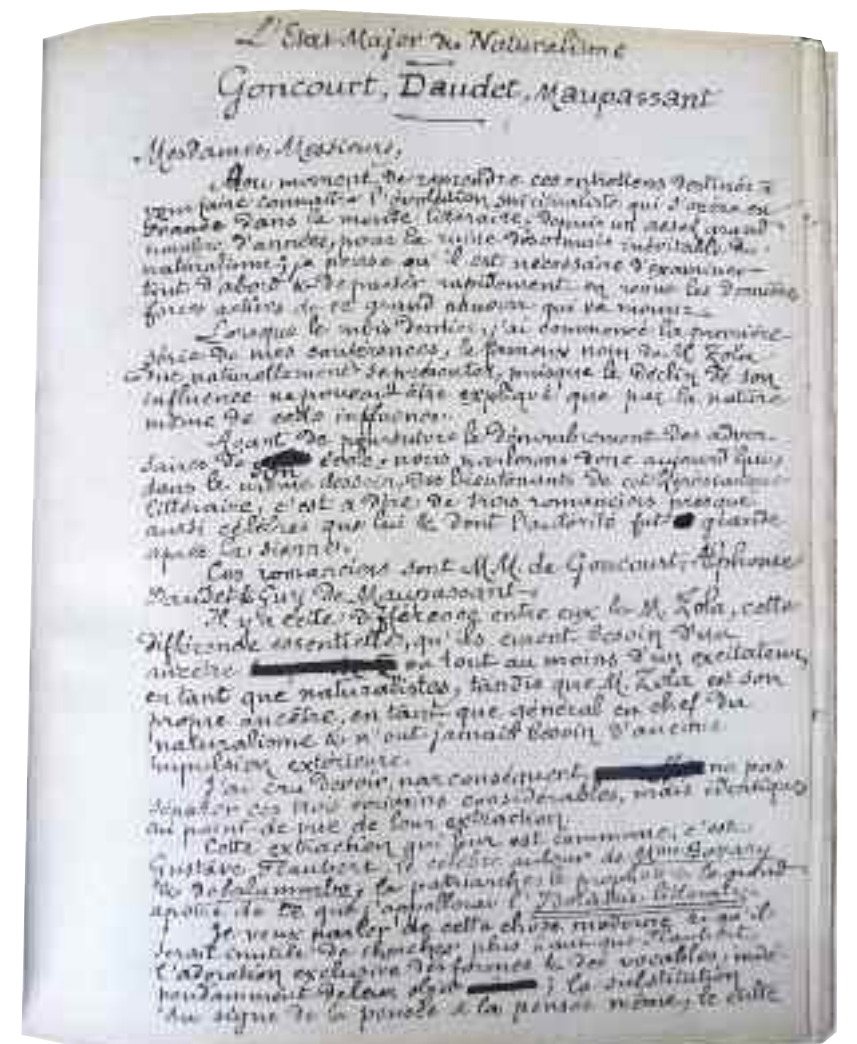 L'Etat-Major du Naturalisme
Goncourt, Daudet, Maupassant
Mesdames, Messieurs,
Au moment de reprendre ces entretiens destinés à
vous faire connaître l'évolution qui s'opère en
France dans le monde littéraire, depuis un assez grand
nombre d'années, pour la ruine désormais inévitable du
naturalisme ; je pense qu'il est nécessaire d'examiner
tout d'abord & de passer rapidement en revue les dernières
forces actives de ce grand pouvoir qui va mourir.
Lorsque le mois dernier, j'ai commencé la première
série de mes conférences, le fameux nom de M. Zola
dut naturellement se présenter, puisque le déclin de son
influence ne pouvait être expliqué que par la nature
même de cette influence.
Avant de poursuivre le dénombrement des adver-
saires de son école, nous parlerons donc aujourd'hui,
dans le même dessein, des lieutenants de cet
littéraire, c'est à dire de trois romanciers presque
aussi célèbres que lui & dont l'autorité fut grande
après la sienne.
Ces romanciers sont MM. de Goncourt, Alphonse
Daudet & Guy de Maupassant.
Il y a cette différence entre eux & M. Zola, cette
différence essentielle, qu'ils eurent besoin d'un
ancêtre ou tout au moins d'un excitateur,
en tant que naturalistes, tandis que M. Zola est son
propre ancêtre, en tant que général en chef du
naturalisme & n'eut jamais besoin d'aucune
impulsion extérieure.
J'ai cru devoir, par conséquent, ne pas
séparer ces trois écrivains considérables, mais identiques
au point de vue de leur extraction.
Cette extraction qui leur est commune, c'est
Gustave Flaubert, le célèbre auteur de Mme Bovary
& de Salammbô, le patriarche, le prophète & le grand
apôtre de ce que j'appellerai l'Idolâtrie littéraire.
Je veux parler de cette chose moderne & qu'il
serait inutile de chercher plus haut que Flaubert,
l'adoration exclusive des formes & des vocables, indé-
pendamment de leur objet ; la substitution
du signe de la pensée à la pensée même, le culte